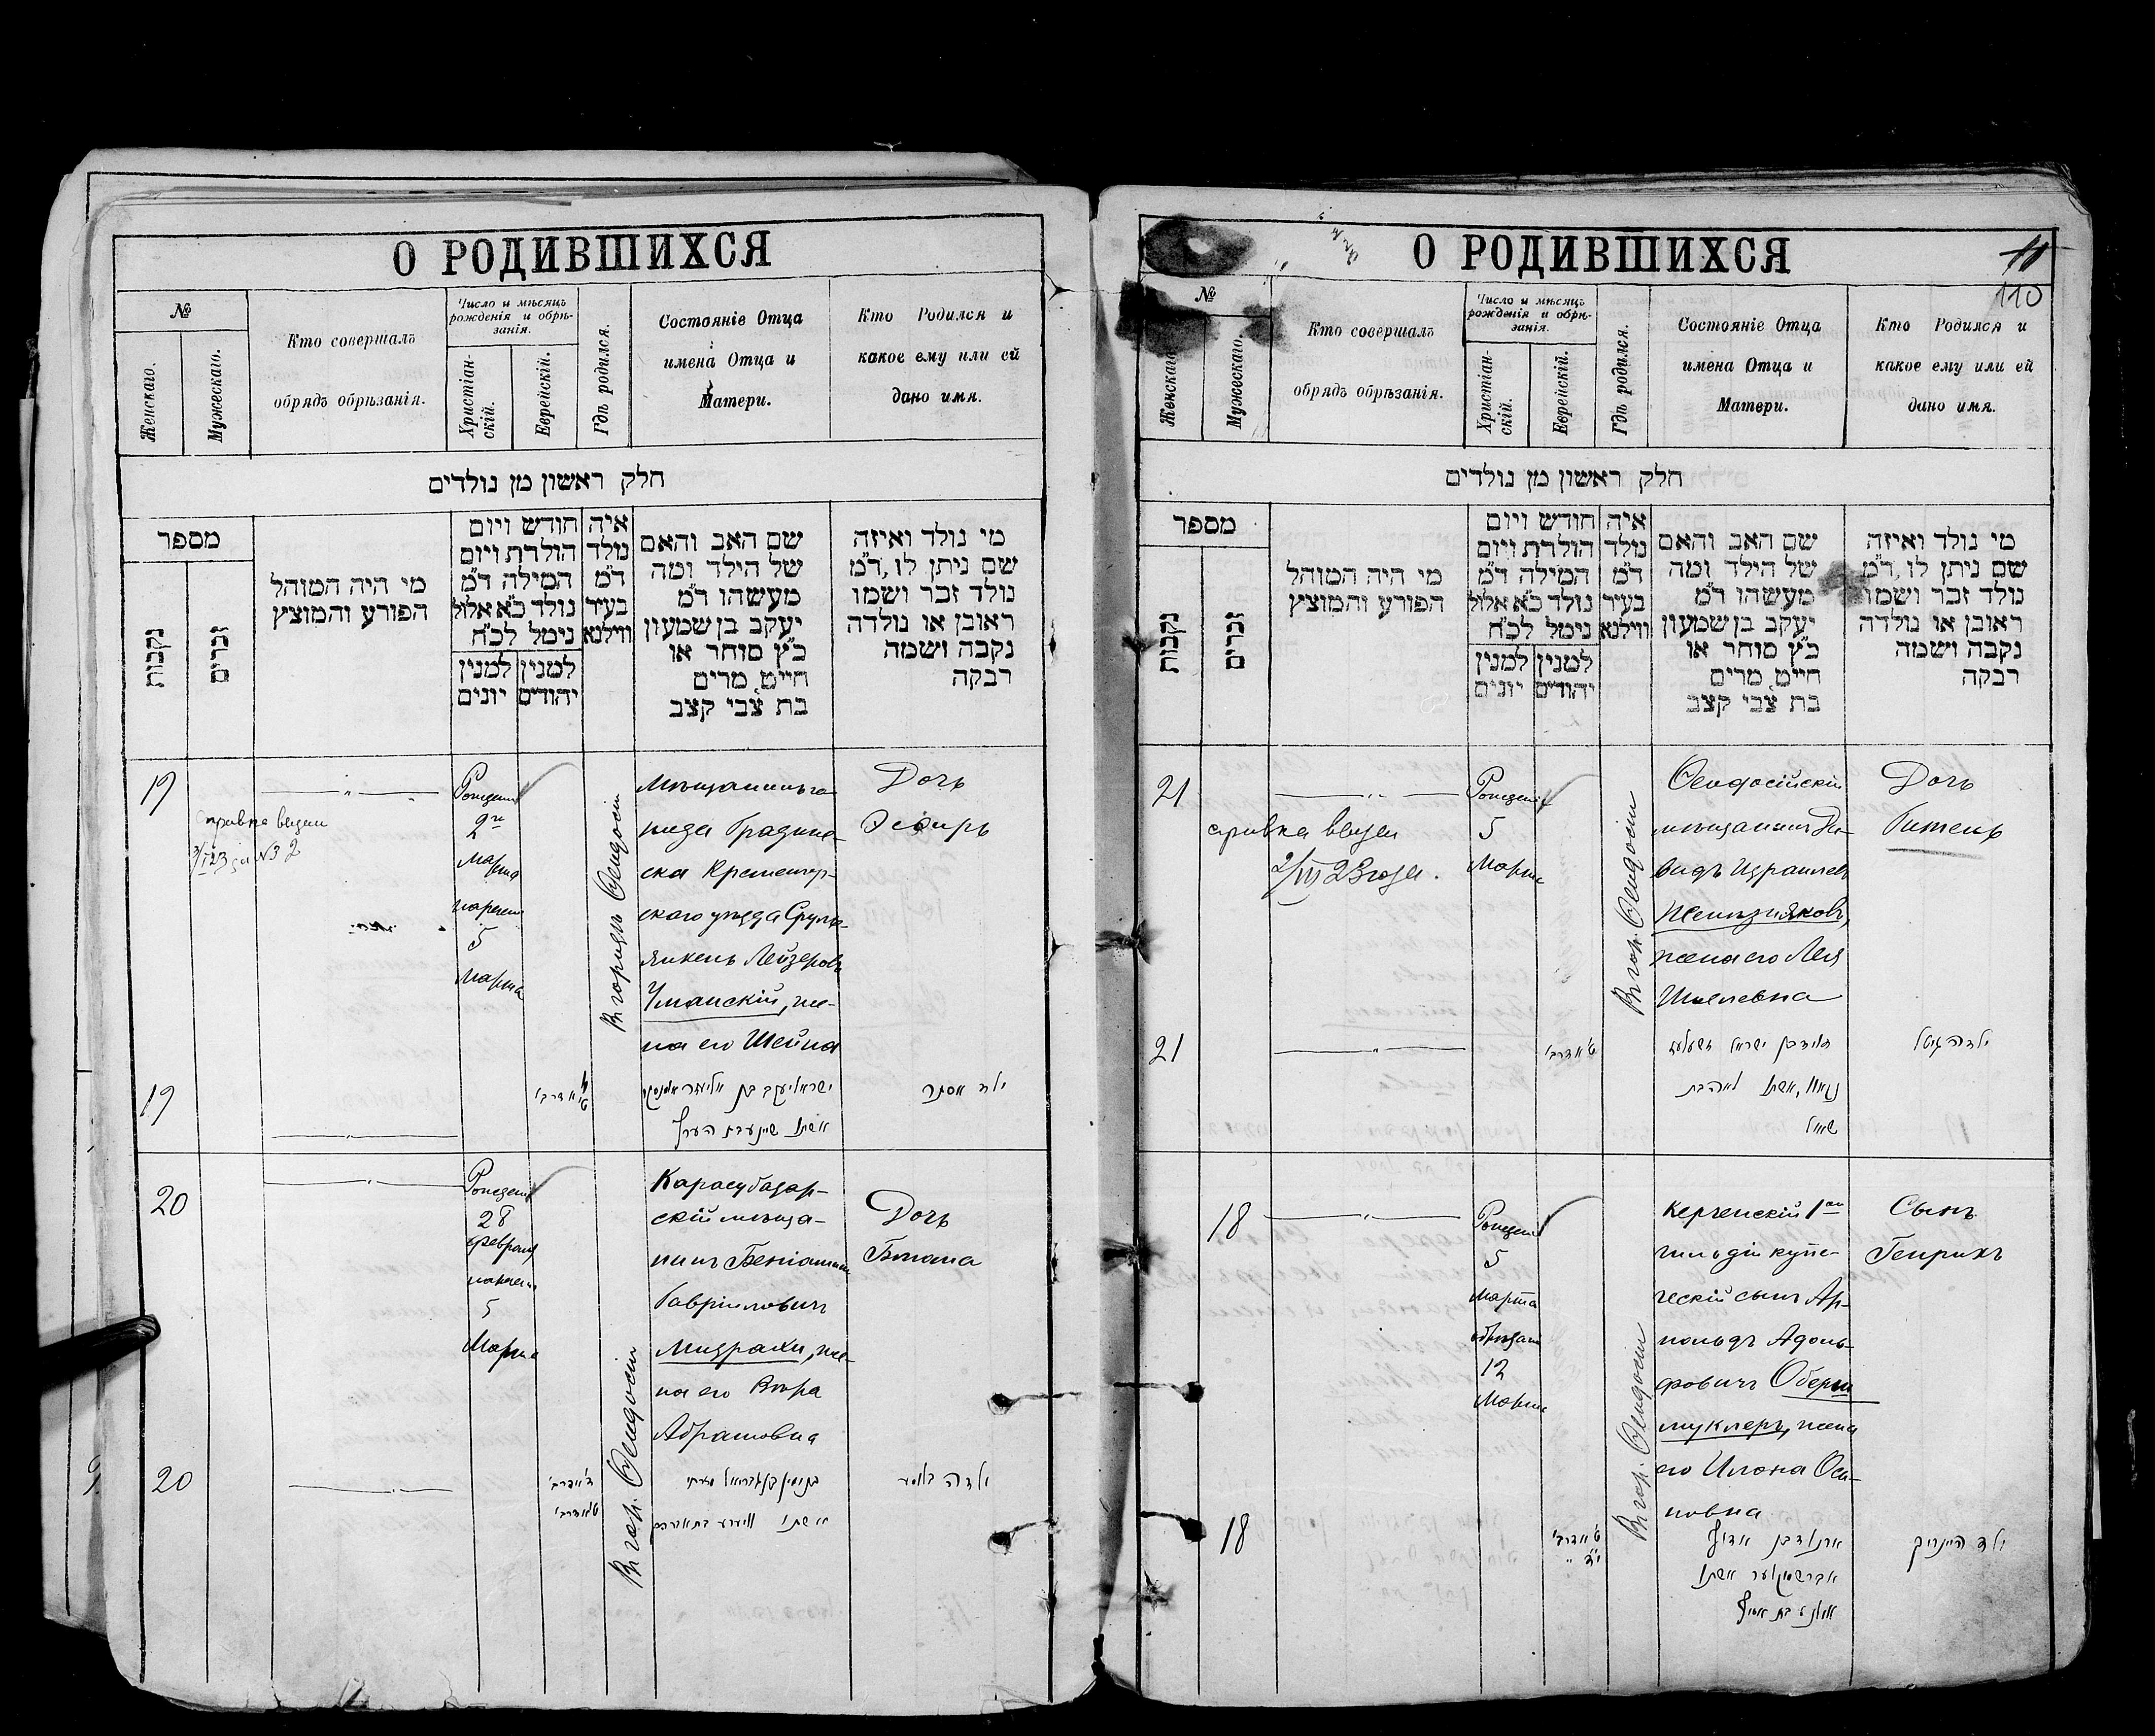 О РОДИВШИХСЯ
№
Женскаго.
Мужескаго.
Кто совершалъ
обрядъ обрѣзанія.
Число и мѣсяцъ
рожденія и обрѣ-
занія.
Христіан-
скій.
Еврейскій.
Гдѣ родился.
Состояніе Отца
имена Отца и
Матери.
Кто Родился и
какое ему или ей
дано имя.
חלק ראשון מן נולדים
מספר
נקבות
זכרים
מי היה המוהל
הפורע והמוצץ
חודש ויום
הולדת ויום
המילה ד״מ
נולד כ״א אלול
נימל לכ״ח
למנין
יהודים
למנין
יונים
איה
נולד
ד״מ
בעיר
ווילנא
שם האב והאם
של הילד ומה
מעשהו ד״מ
יעקב בן שמעון
כ״ץ סוחר או
חייט מרים
בת צבי קצב
מי נולד ואיזה
שם ניתן לו, ד״מ
נולד זכר ושמו
ראובן או נולדה
נקבה ושמה
רבקה
19
2
Марта
5
Марта
Въ городѣ Ѳеодосіи
скаго уѣзда Сруль
Янкель Лейзеровъ
Уманскій, же-
на его Шейна
Дочь
Эсѳирь
19
ילד אסתר
20
28
февраля
5
Марта
Въ гор. Ѳеодосіи
Карасубазар-
скій мѣща-
нинъ Беніаминъ
Гавріиловичъ
Мизрахи, же-
на его Вѣра
Абрамовна
Дочь
20
О РОДИВШИХСЯ
11
110
№
Женскаго
Мужескаго.
Кто совершалъ
обрядъ обрѣзанія.
Число и мѣсяцъ
рожденія и обрѣ-
занія.
Христіан-
скій.
Еврейскій.
Гдѣ родился.
Состояніе Отца
имена Отца и
Матери.
Кто Родился и
какое ему или ей
дано имя.
חלק ראשון מן נולדים
מספר
נקבות
זכרים
מי היה המוהל
הפורע והמוצץ
חודש ויום
הולדת ויום
המילה ד״מ
נולד כ״א אלול
נימל לכ״ח
למנין
יהודים
למנין
יונים
איה
נולד
ד״מ
בעיר
ווילנא
שם האב והאם
של הילד ומה
מעשהו ד״מ
יעקב בן שמעון
כ״ץ סוחר או
חייט מרים
בת צבי קצב
מי נולד ואיזה
שם ניתן לו, ד״מ
נולד זכר ושמו
ראובן או נולדה
נקבה ושמה
רבקה
21
5
Марта
Въ гор. Ѳеодосіи
Ѳеодосійскій
мѣщанинъ Да-
видъ Израилевъ
жена его Лея
Шмелевна
Дочь
21
18
5
Марта
12
Марта
Въ гор. Ѳеодосіи
Керченскій 1ой
гильдіи купе-
ческій сынъ Ар-
нольдъ Адоль-
фовичъ Оберш
муклеръ, жена
его Илона Оси-
повна
Сынъ
Генрихъ
18
ילד היינריך